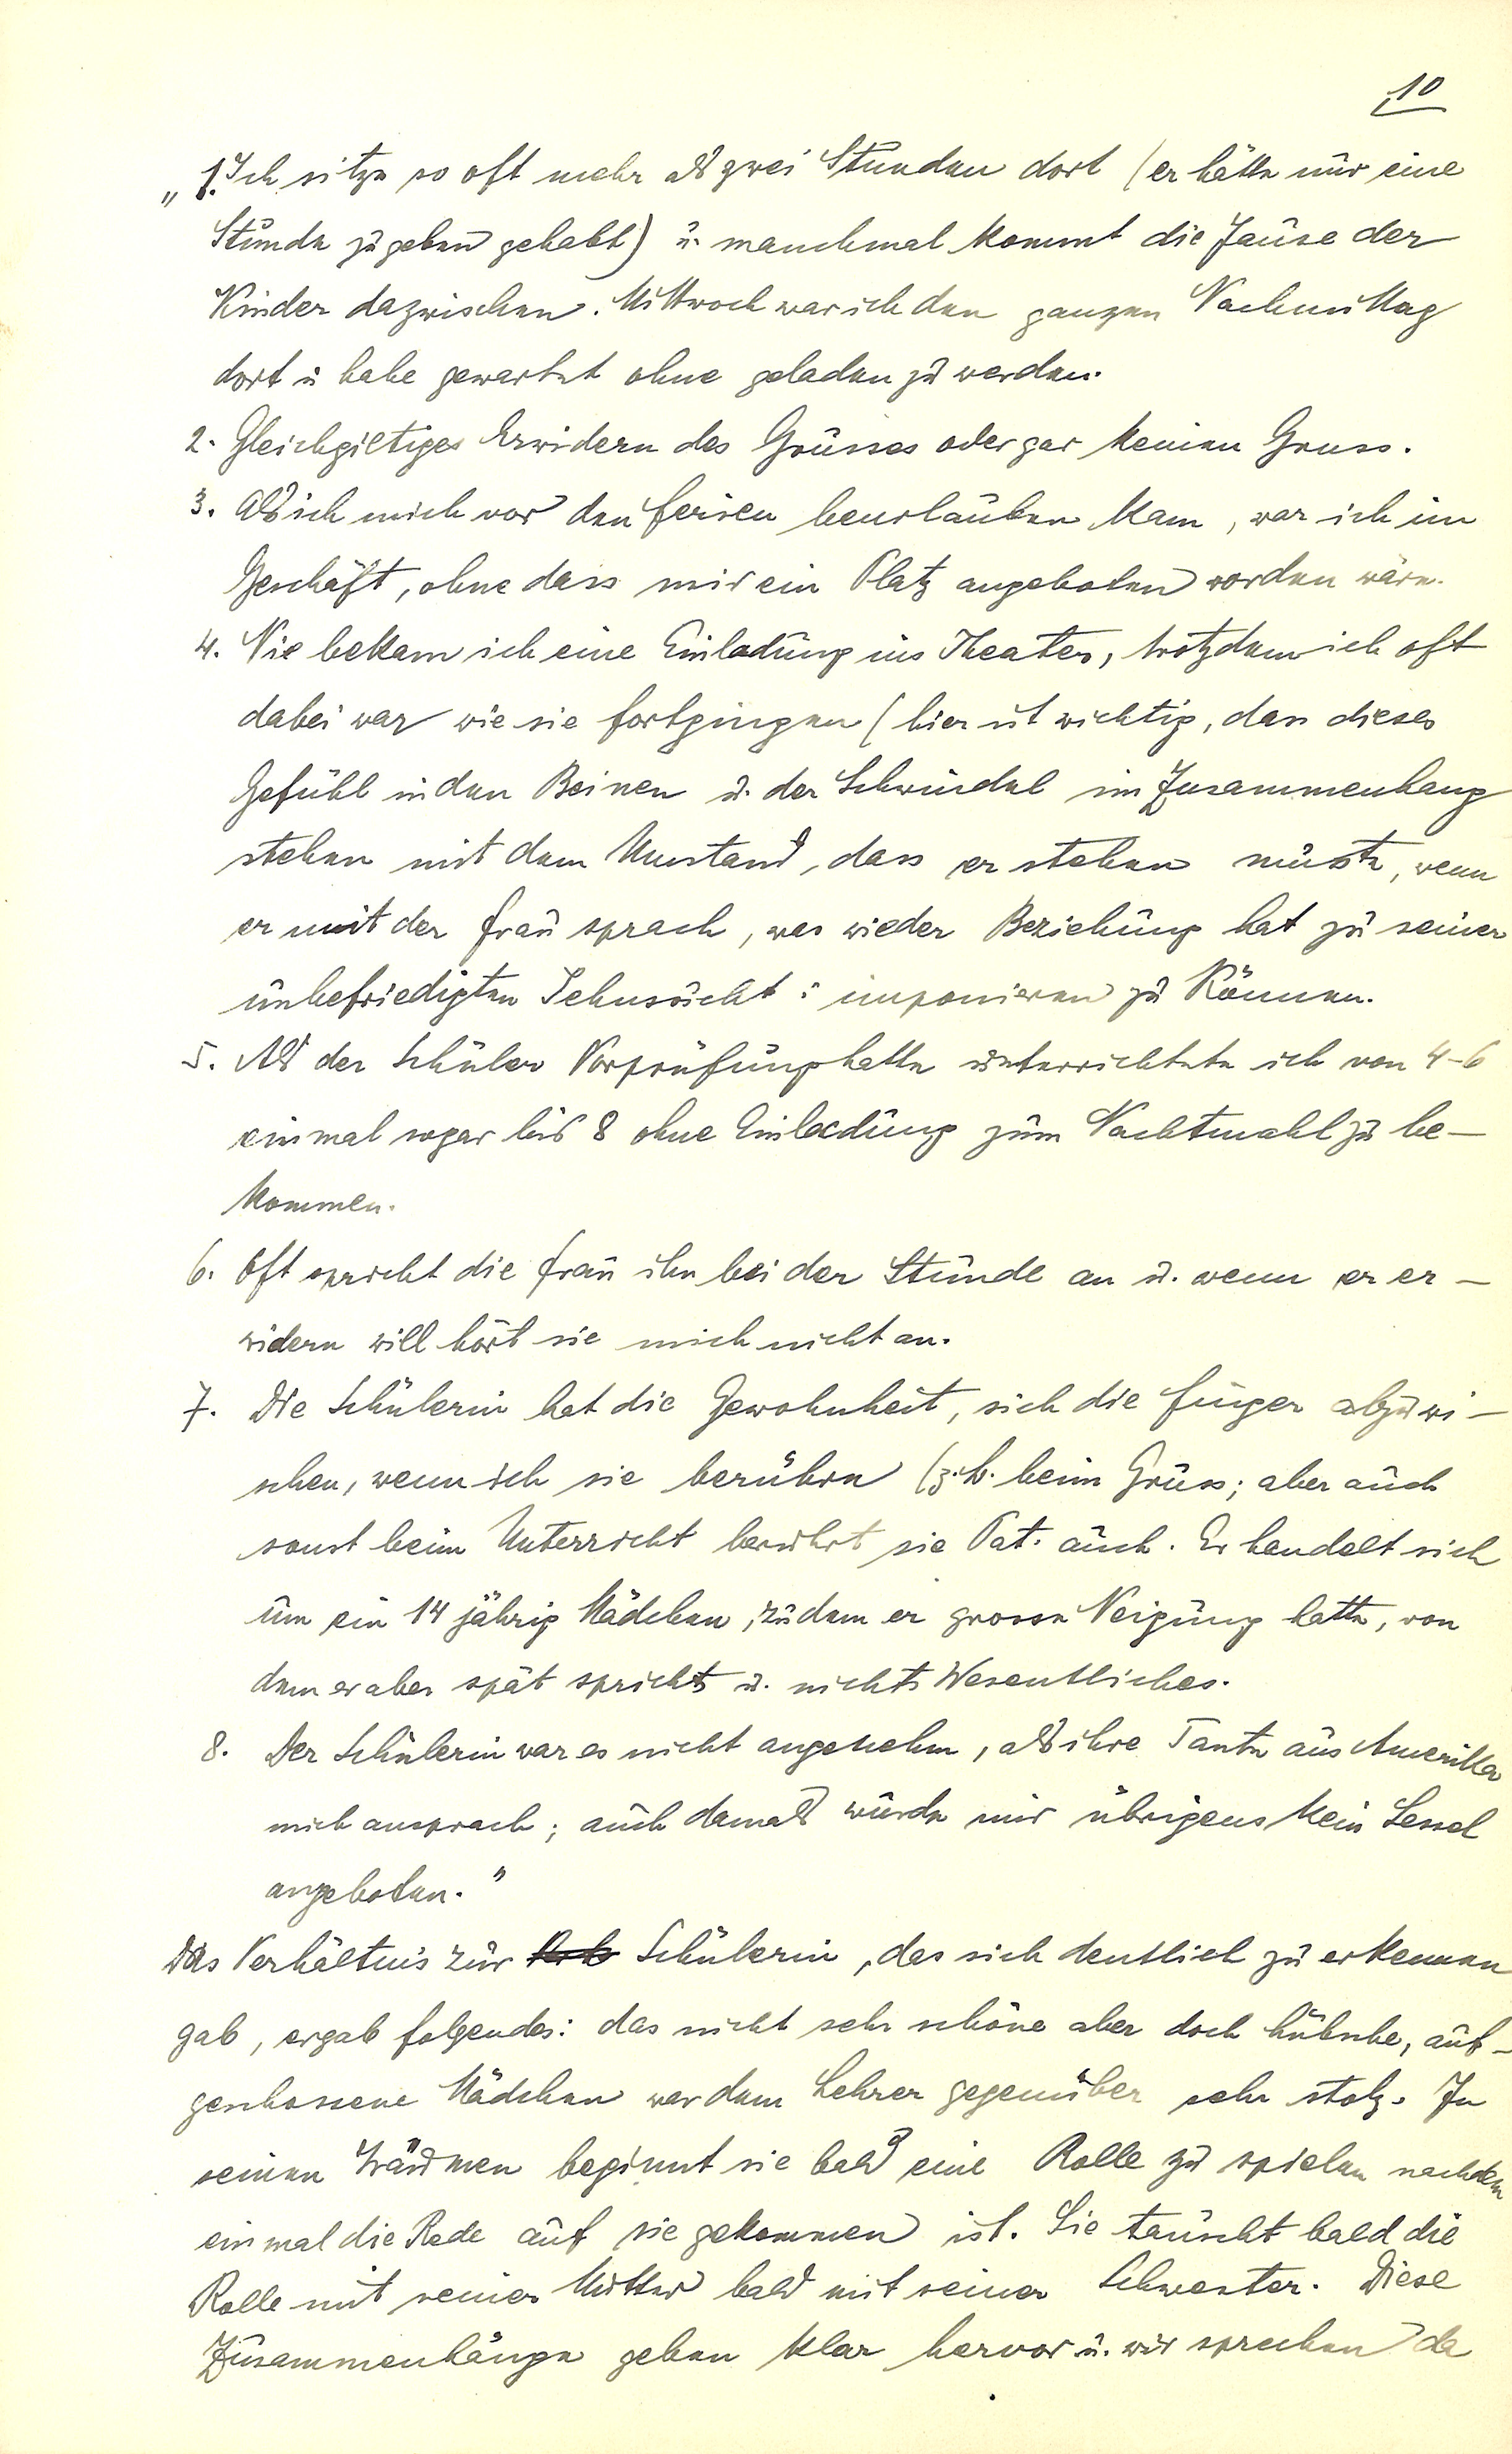 10
„1. Ich sitze so oft mehr als zwei Stunden dort (er hätte nur eine
Stunde zu geben gehabt) u. manchmal kommt die Jause der
Kinder dazwischen. Mittwoch war ich den ganzen Nachmittag
dort u habe gewartet ohne geladen zu werden.
2. Gleichgiltiges Erwidern des Grusses oder gar keinen Gruss.
3. Als ich mich vor den Ferien beurlauben kam, war ich im
Geschäft, ohne dass mir ein Platz angeboten worden wäre.
4. Nie bekam ich eine Einladung ins Theater, trotzdem ich oft
dabei war wie sie fortgingen (hier ist wichtig, dass dieses
Gefühl in den Beinen u. der Schwindel im Zusammenhang
stehen mit dem Umstand, dass er stehen musste, wenn
er mit der Frau sprach, was wieder Beziehung hat zu seiner
unbefriedigten Sehnsucht: imponieren zu können.
5. Als der Schüler Vorprüfung hatte unterrichtete ich von 4-6
einmal sogar bis 8 ohne Einladung zum Nachtmahl zu be-
kommen.
6. Oft spricht die Frau ihn bei der Stunde an u. wenn er er-
widern will hört sie mich nicht an.
7. Die Schülerin hat die Gewohnheit, sich die Finger abzuwi-
schen, wenn ich sie berühre (z.b. beim Gruss; aber auch
sonst beim Unterricht berührt sie Pat. auch. Es handelt sich
um ein 14 jährig Mädchen, zu dem er grosse Neigung hatte, von
dem er aber spät spricht u. nichts Wesentliches.
8. Der Schülerin war es nicht angenehm, als ihre Tante aus Amerika
mich ansprach; auch damals wurde mir übrigens kein Sessel
angeboten."
Das Verhältnis zur Schülerin, das sich deutlich zu erkennen
gab, ergab folgendes: das nicht sehr schöne aber doch hübsche, auf-
geschossene Mädchen war dem Lehrer gegenüber sehr stolz. In
seinen Träumen beginnt sie bald eine Rolle zu spielen nachdem
einmal die Rede auf sie gekommen ist. Sie tauscht bald die
Rolle mit seiner Mutter bald mit seiner Schwester. Diese
Zusammenhänge gehen klar hervor u. wir sprechen da